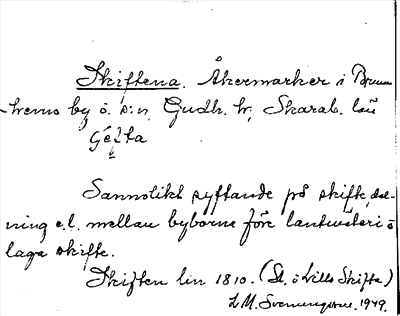 Skiftena. Åkermarker i Brunn-
hems by o. s:n, Gudh. hr, Skarab. län
Götta
Sannolikt syftande på skifte, del-
ning e.l. mellan byborna före lantmäteri o
laga skifte.
Skiften lin 1810. (St. o Lilla Skifte)
L.M. Svenungsson. 1949.